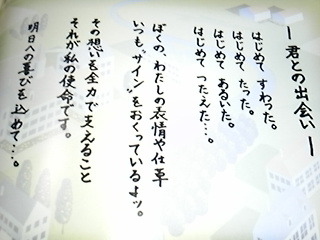 ― 君との出会い ―
はじめて、すわった。
はじめて たった。
はじめて あるいた。
はじめて つたえた…。
ぼくの、わたしの表情や仕草
いつも“サイン”をおくっているよッ。
その想いを全力で支えること
それが私の使命です。
明日への喜びを込めて…。